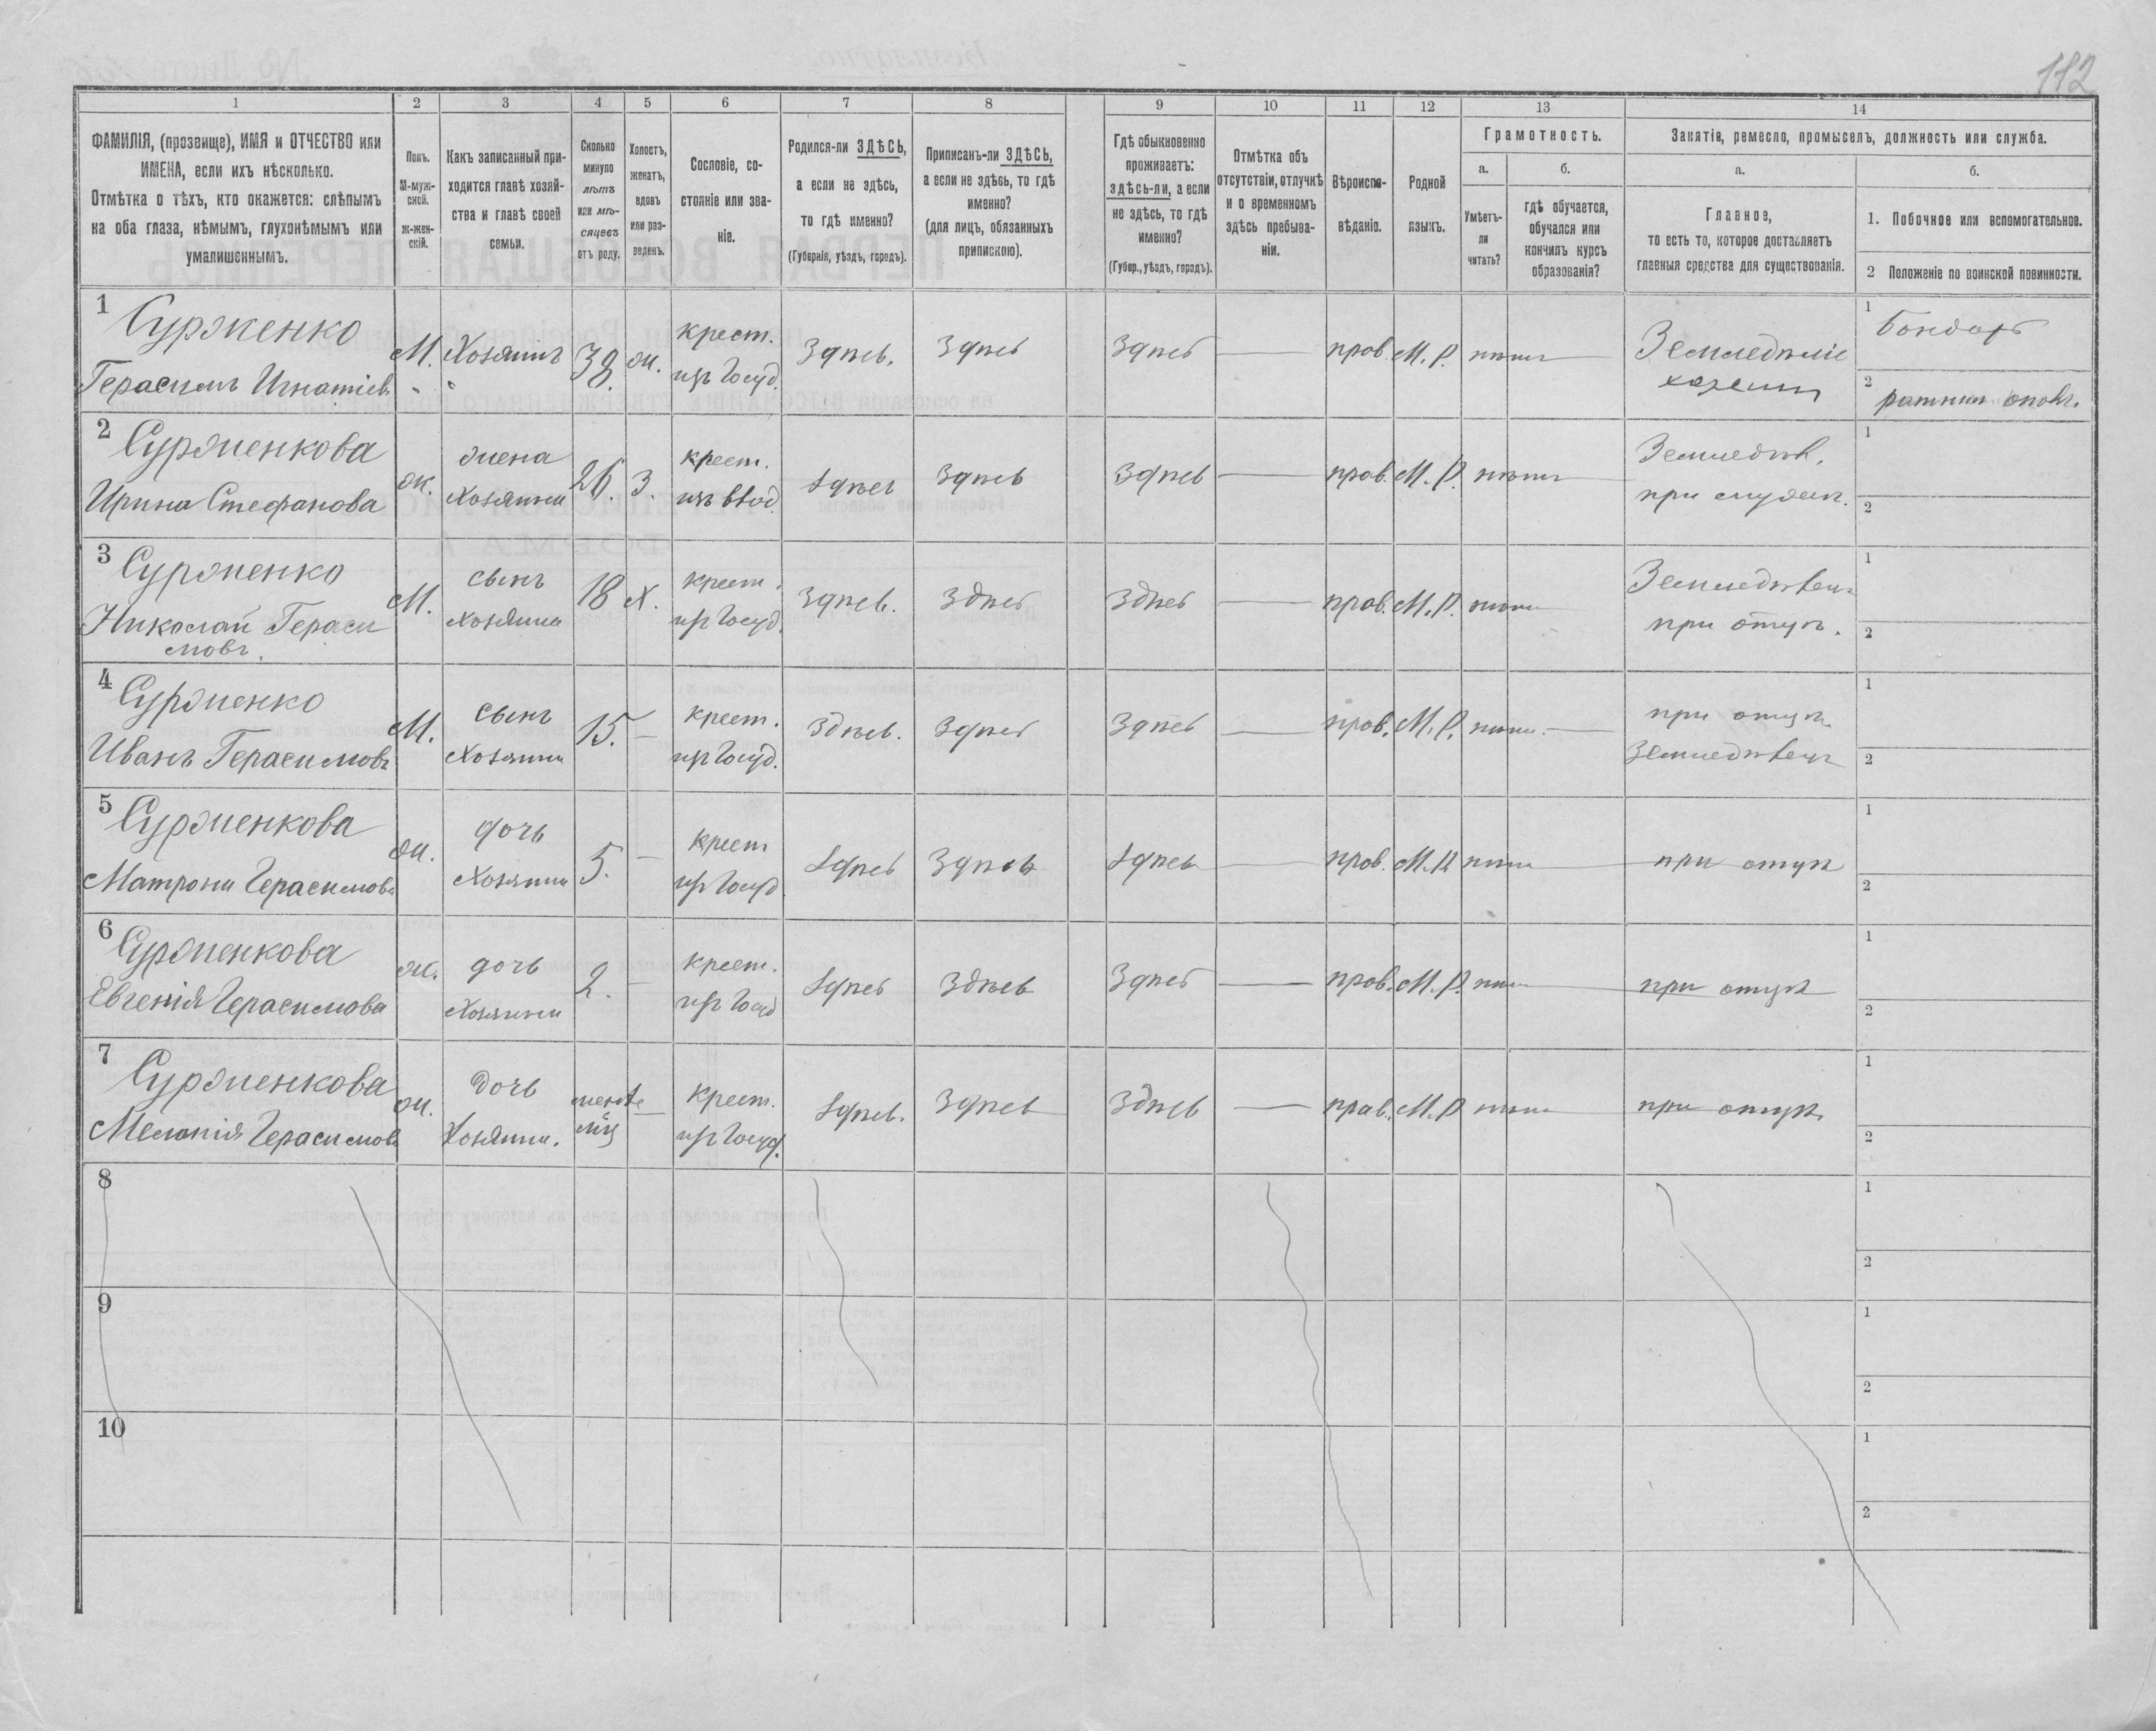 112
1
2
3
4
5
6
7
8
9
10
11
12
13
14
ФАМИЛІЯ, (прозвище), ИМЯ и ОТЧЕСТВО или
ИМЕНА, если ихъ нѣсколько.
Отмѣтка о тѣхъ, кто окажется: слѣпымъ
на оба глаза, нѣмымъ, глухонѣмымъ или
умалишеннымъ.
Полъ.
М-муж-
ской.
Ж-жен-
скій.
Какъ записанный при-
ходится главѣ хозяй-
ства и главѣ своей
семьи.
Сколько
минуло
лѣтъ
или мѣ-
сяцевъ
отъ роду.
Холостъ,
женатъ,
вдовъ
или раз-
веденъ.
Сословіе, со-
стояніе или зва-
ніе.
Родился-ли ЗДѢСЬ,
а если не здѣсь,
то гдѣ именно?
(Губернія, уѣздъ, городъ).
Приписанъ-ли ЗДѢСЬ,
а если не здѣсь, то гдѣ
именно?
(для лицъ, обязанныхъ
припискою).
Гдѣ обыкновенно
проживаетъ:
здѣсь-ли, а если
не здѣсь, то гдѣ
именно?
(Губер., уѣздъ, городъ).
Отмѣтка объ
отсутствіи, отлучкѣ
и о временномъ
здѣсь пребыва-
ніи.
Вѣроиспо-
вѣданіе.
Родной
языкъ.
Грамотность.
а.
Умѣетъ-
ли
читать?
б.
гдѣ обучается,
обучался или
кончилъ курсъ
образованія?
Занятія, ремесло, промыселъ, должность или служба.
а.
Главное,
то есть то, которое доставляетъ
главныя средства для существованія.
б.
1. Побочное или вспомогательное.
2 Положеніе по воинской повинности.
1
Сурженко
Герасимъ Игнатіевъ
М.
Хозяинъ
39.
ж.
крест.
изъ Госуд.
Здѣсь.
Здѣсь
Здѣсь
прав.
М. Р.
нѣтъ
Земледѣліе
хозяинъ
1
Бондарь
2
ратникъ ополч.
2
Сурженкова
Ирина Стефанова
ж.
жена
Хозяина
26.
З.
крест.
Здѣсь
Здѣсь
Здѣсь
прав.
М. Р.
нѣтъ
Земледѣл.
1
2
3
Сурженко
Николай Гераси
мовъ.
М.
сынъ
Хозяина
18
Х.
крест.
изъ Госуд.
Здѣсь.
Здѣсь
Здѣсь
прав.
М. Р.
нѣтъ
Земледѣлецъ
при отцѣ.
1
2
4
Сурженко
Иванъ Герасимовъ
М.
сынъ
Хозяина
15.
крест.
изъ Госуд.
Здѣсь.
Здѣсь
Здѣсь
прав.
М. Р.
нѣтъ.
при отцѣ
Земледѣлецъ
1
2
5
Сурженкова
Матрона Герасимова
ж.
дочь
Хозяина
5.
крест
изъ Госуд
Здѣсь
Здѣсь
Здѣсь
прав.
М. Р.
нѣтъ
при отцѣ
1
2
6
Сурженкова
Евгенія Герасимова
ж.
дочь
Хозяина
2.
крест.
изъ Госуд
Здѣсь
Здѣсь
Здѣсь
прав.
М. Р.
нѣтъ
при отцѣ
1
2
7
Сурженкова
Меланія Герасимова
ж.
дочь
Хозяина.
крест.
изъ Госуд.
Здѣсь.
Здѣсь
Здѣсь
прав.
М. Р
нѣтъ
при отцѣ
1
2
8
1
2
9
1
2
10
1
2